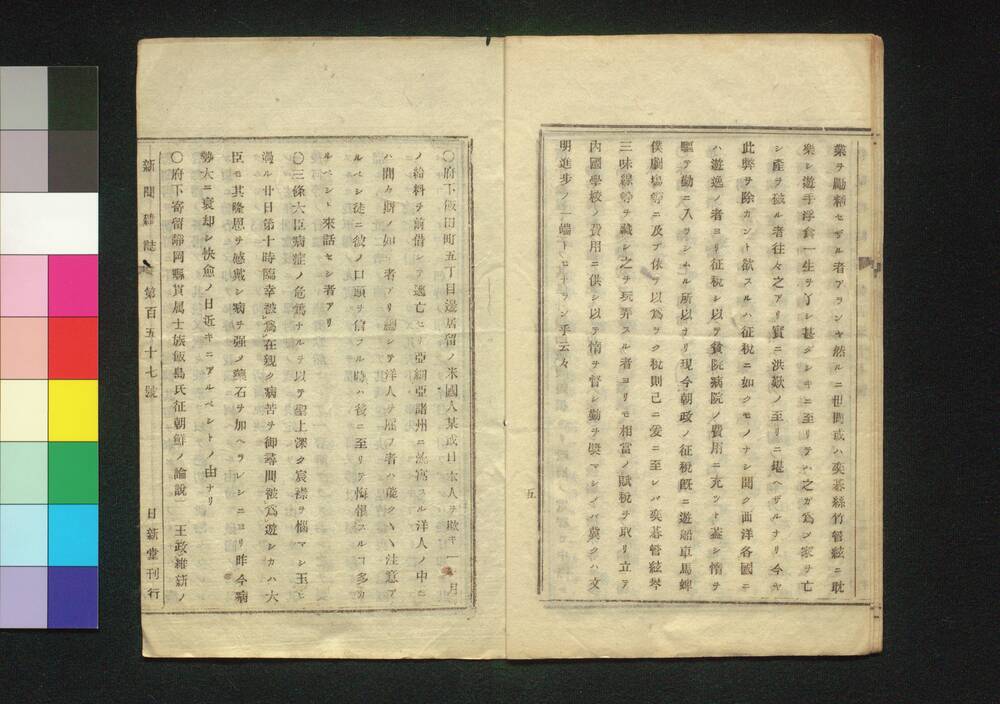 業ヲ勵精セザル者アランヤ然ルニ世間或ハ奕碁絲竹管絃ニ耽
樂シ遊手浮食一生ヲ了シ甚ダシキニ至リテハ之ガ爲メ家ヲ亡
シ產ヲ破ル者往々之アリ實ニ洪歎ノ至リニ堪ヘザルナリ今ヤ
此弊ヲ除カント欲スルハ征稅ニ如クモノナシ聞ク西洋各國ニ
ハ遊逸ノ者ヨリ征稅シ以テ貧院病院ノ費用ニ充ツト蓋シ惰ヲ
驅テ勤ニ入ラシムル所以ナリ現今朝政ノ征稅旣ニ遊船車馬婢
僕劇場等ニ及ブ依テ以爲ラク稅則已ニ爰ニ至レバ奕碁管絃琴
三味線等ヲ藏シ之ヲ玩弄スル者ヨリモ相當ノ賦稅ヲ取リ立テ
內國學校ノ費用ニ供シ以テ惰ヲ督シ勤ヲ奬マシイバ冀クハ文
明進步ノ一端トモナラン乎云々
五
〇府下飯田町五丁目邊居留ノ米國人某或日本人ヲ欺キ一ヶ月
ノ給料ヲ前借シテ逃亡セリ亞細亞諸州ニ流寓スル洋人ノ中ニ
ハ間々斯ノ如キ者アリ總シテ洋人ヲ雇フ者ハ能ク〱注意ア
ルベシ徒ニ彼ノ口頭ヲ信フル時ハ後ニ至リテ悔恨スルヿ多カ
ルベシト來話セシ者アリ
〇三條大臣病症ノ危篤ナルヲ以テ聖上深ク宸襟ヲ惱マシ玉ヒ
過ル廿日第十時臨幸被爲在親ク病苦ヲ御尋問被爲遊シカハ大
臣モ其隆恩ヲ感戴シ病ヲ强メ藥石ヲ加ヘラレシニヨリ昨今病
勢大ニ衰却シ快愈ノ日近キニアルベシトノ由ナリ
〇府下寄留靜岡縣貫屬士族飯島氏征朝鮮ノ論說　王政維新ノ
新聞雜誌　第百五十七號　日新堂刊行